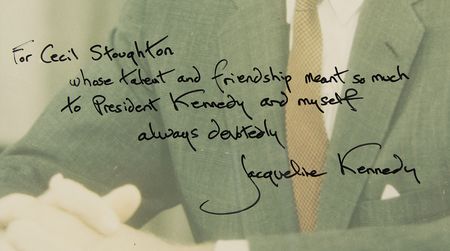 For Cecil Stoughton
whose talent and friendship meant so much
to President Kennedy and myself
always devotedly
Jacqueline Kennedy